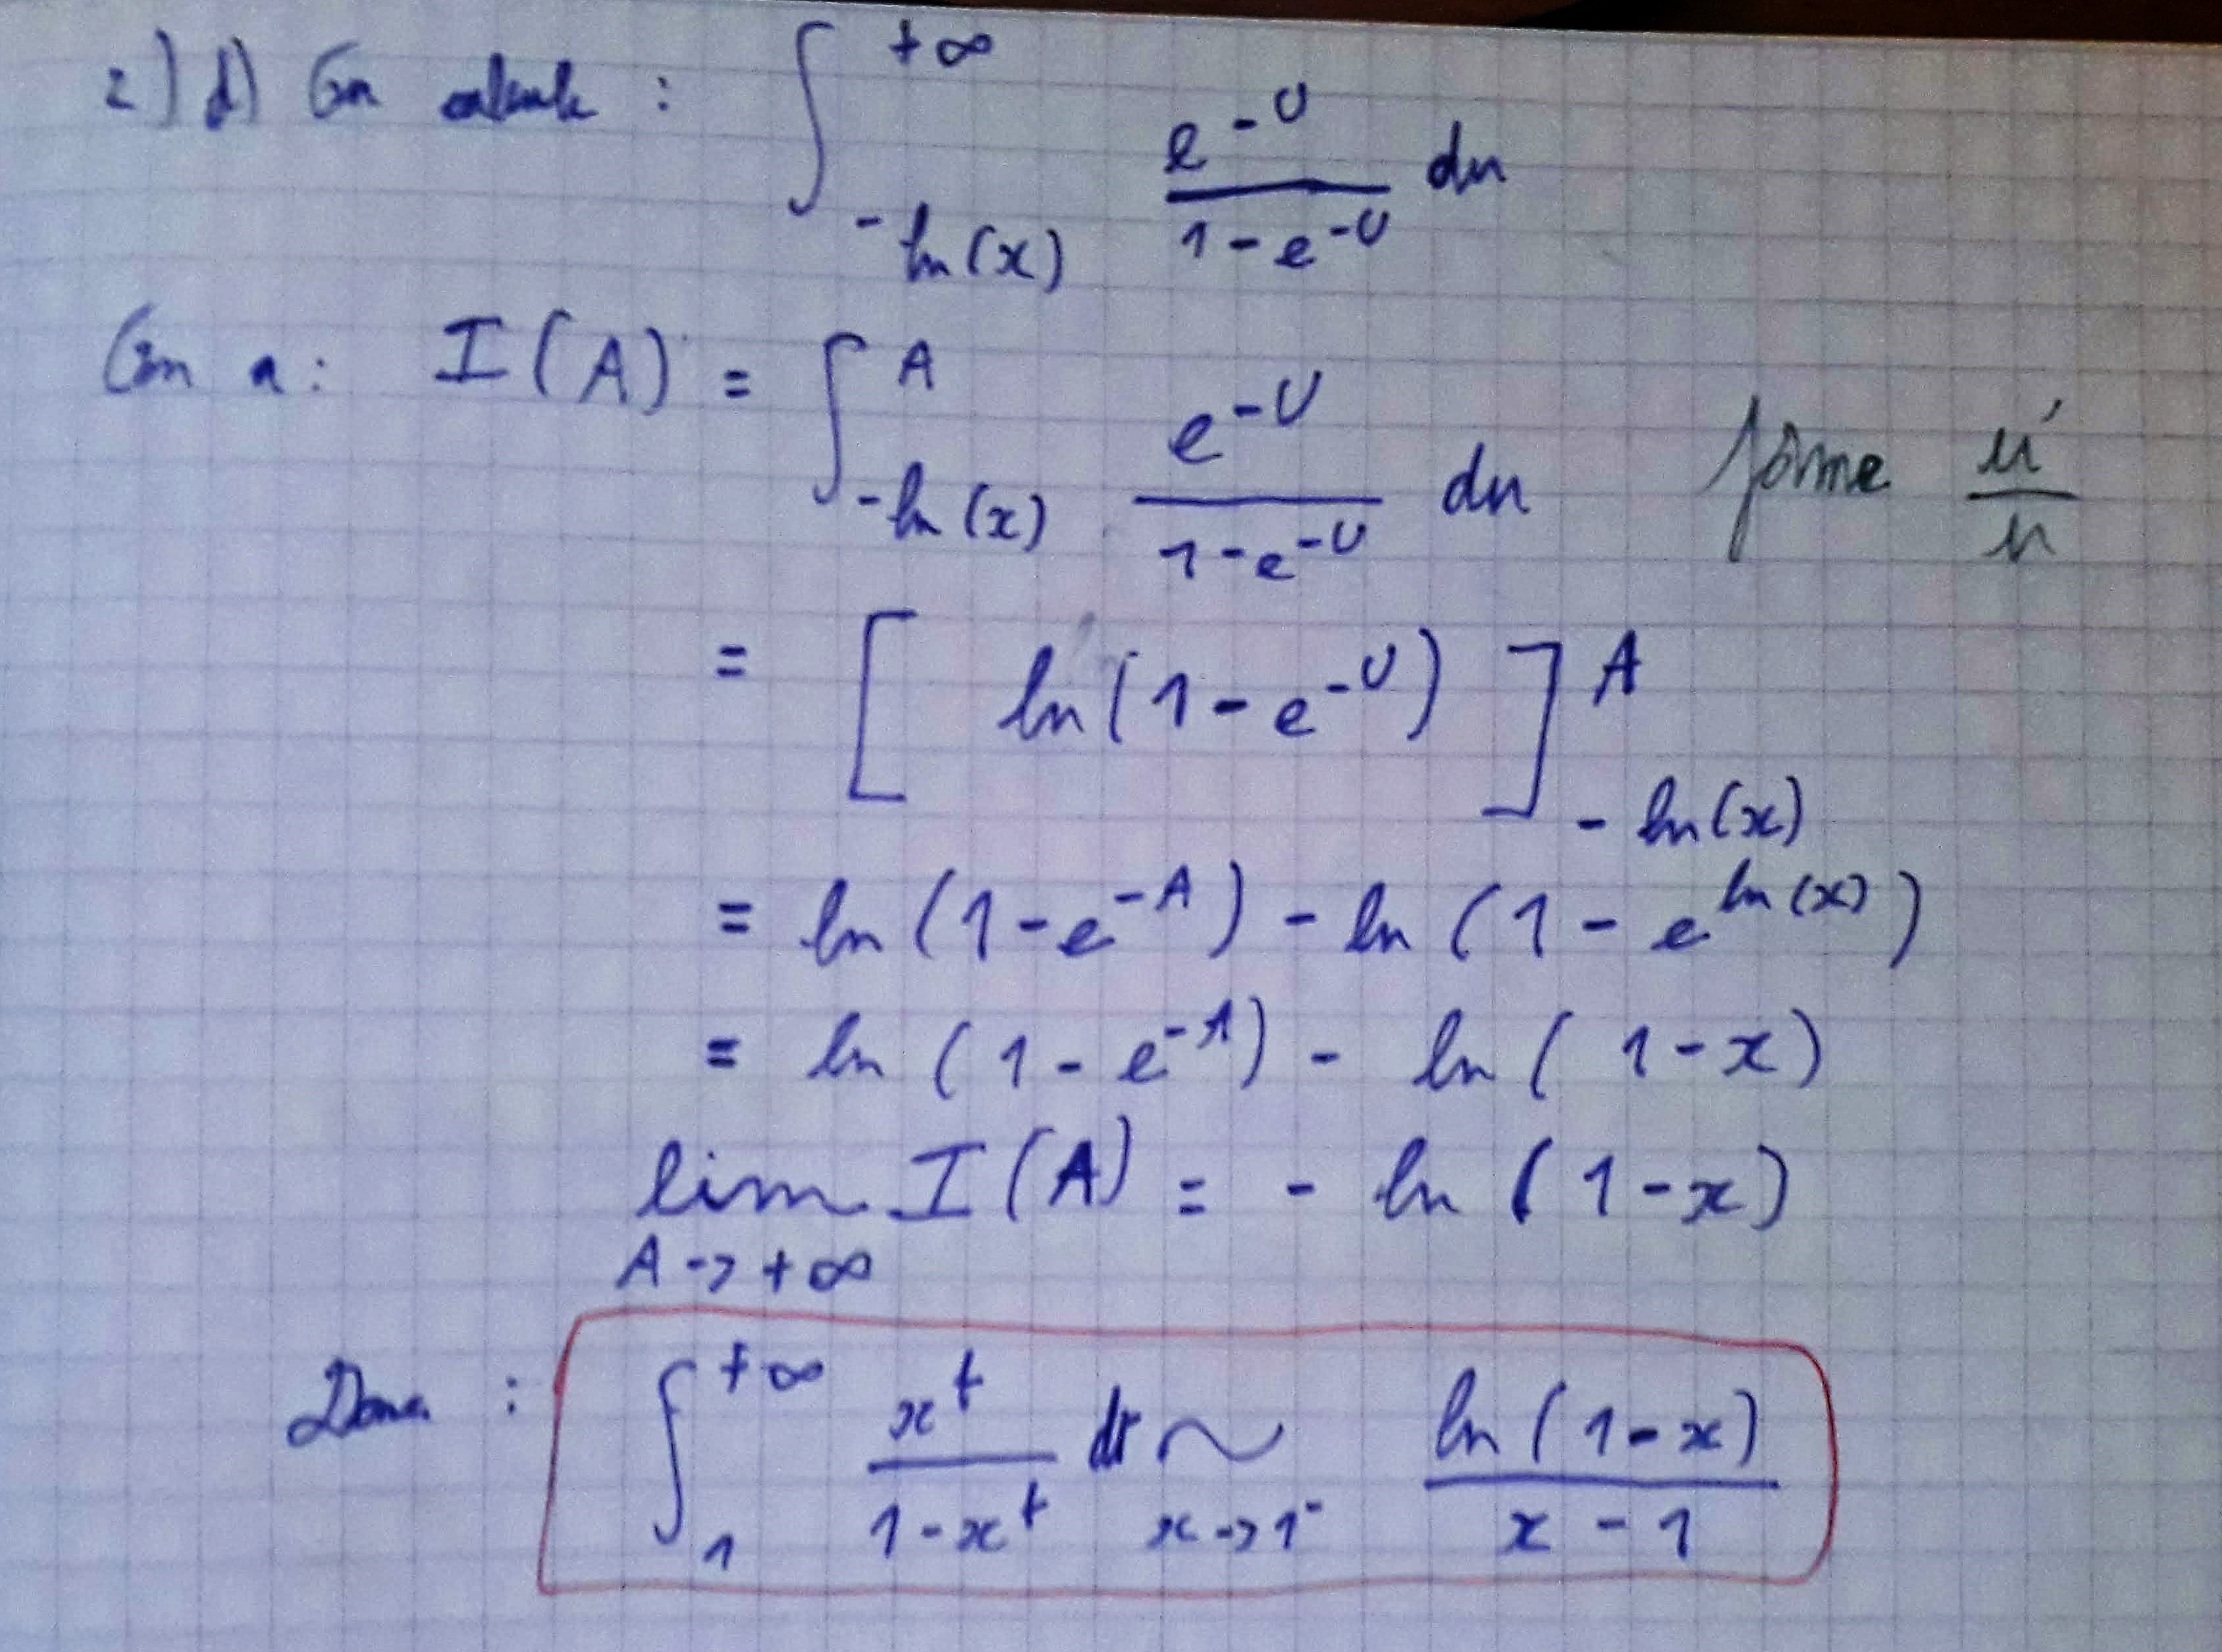 2) d) On calcule : ∫_{-ln(x)}^{+∞} \frac{e^{-U}}{1-e^{-U}} du
On a : I(A) = ∫_{-ln(x)}^{A} \frac{e^{-U}}{1-e^{-U}} du forme \frac{u'}{u}
= [ ln(1-e^{-U}) ]_{-ln(x)}^{A}
= ln(1-e^{-A}) - ln(1-e^{ln(x)})
= ln(1-e^{-A}) - ln(1-x)
lim_{A->+∞} I(A) = - ln(1-x)
Donc : ∫_{1}^{+∞} \frac{x^t}{1-x^t} dt ~_{x->1^-} \frac{ln(1-x)}{x-1}